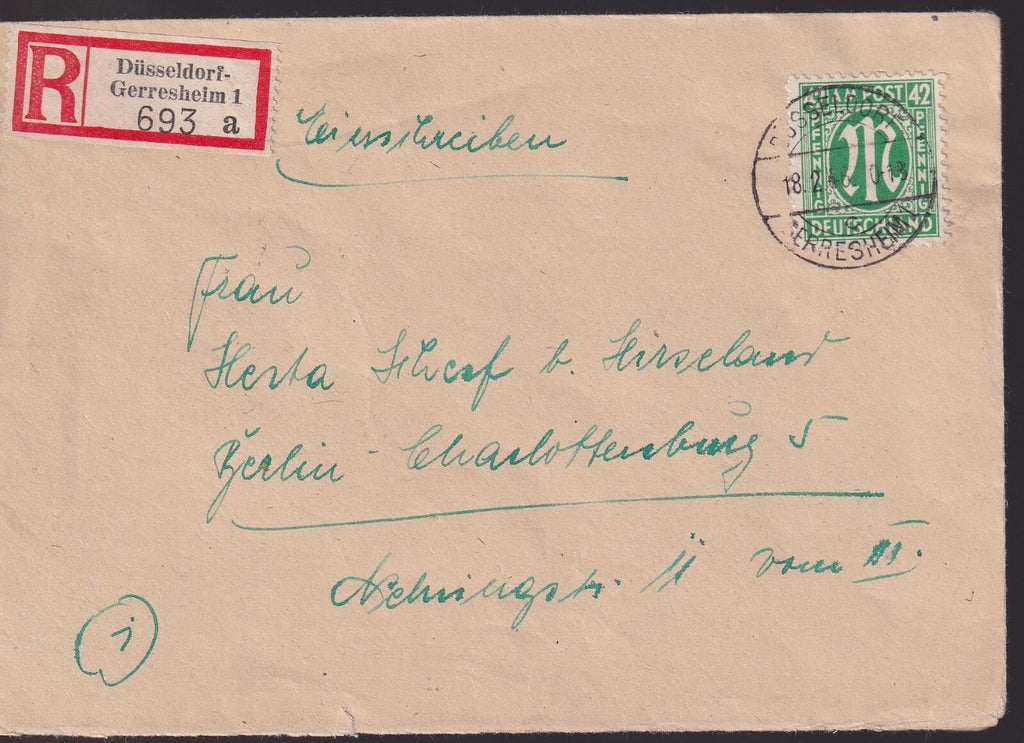 R
Düsseldorf-
Gerresheim 1
693 a
Einschreiben
AM POST 42
PFENNIG
PENNIG
DEUTSCHLAND
DÜSSELDORF
18.2.46. 0-18
GERRESHEIM 1
Frau
Herta b. Hirseland
Berlin-Charlottenburg 5
11 vom III.